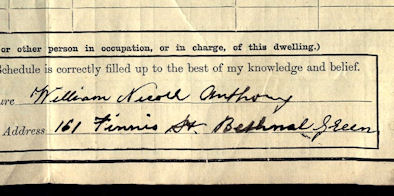 or other person in occupation, or in charge, of this dwelling.)
Schedule is correctly filled up to the best of my knowledge and belief.
ure William Nicoll Anthony
Address 161 Finnis St Bethnal Green